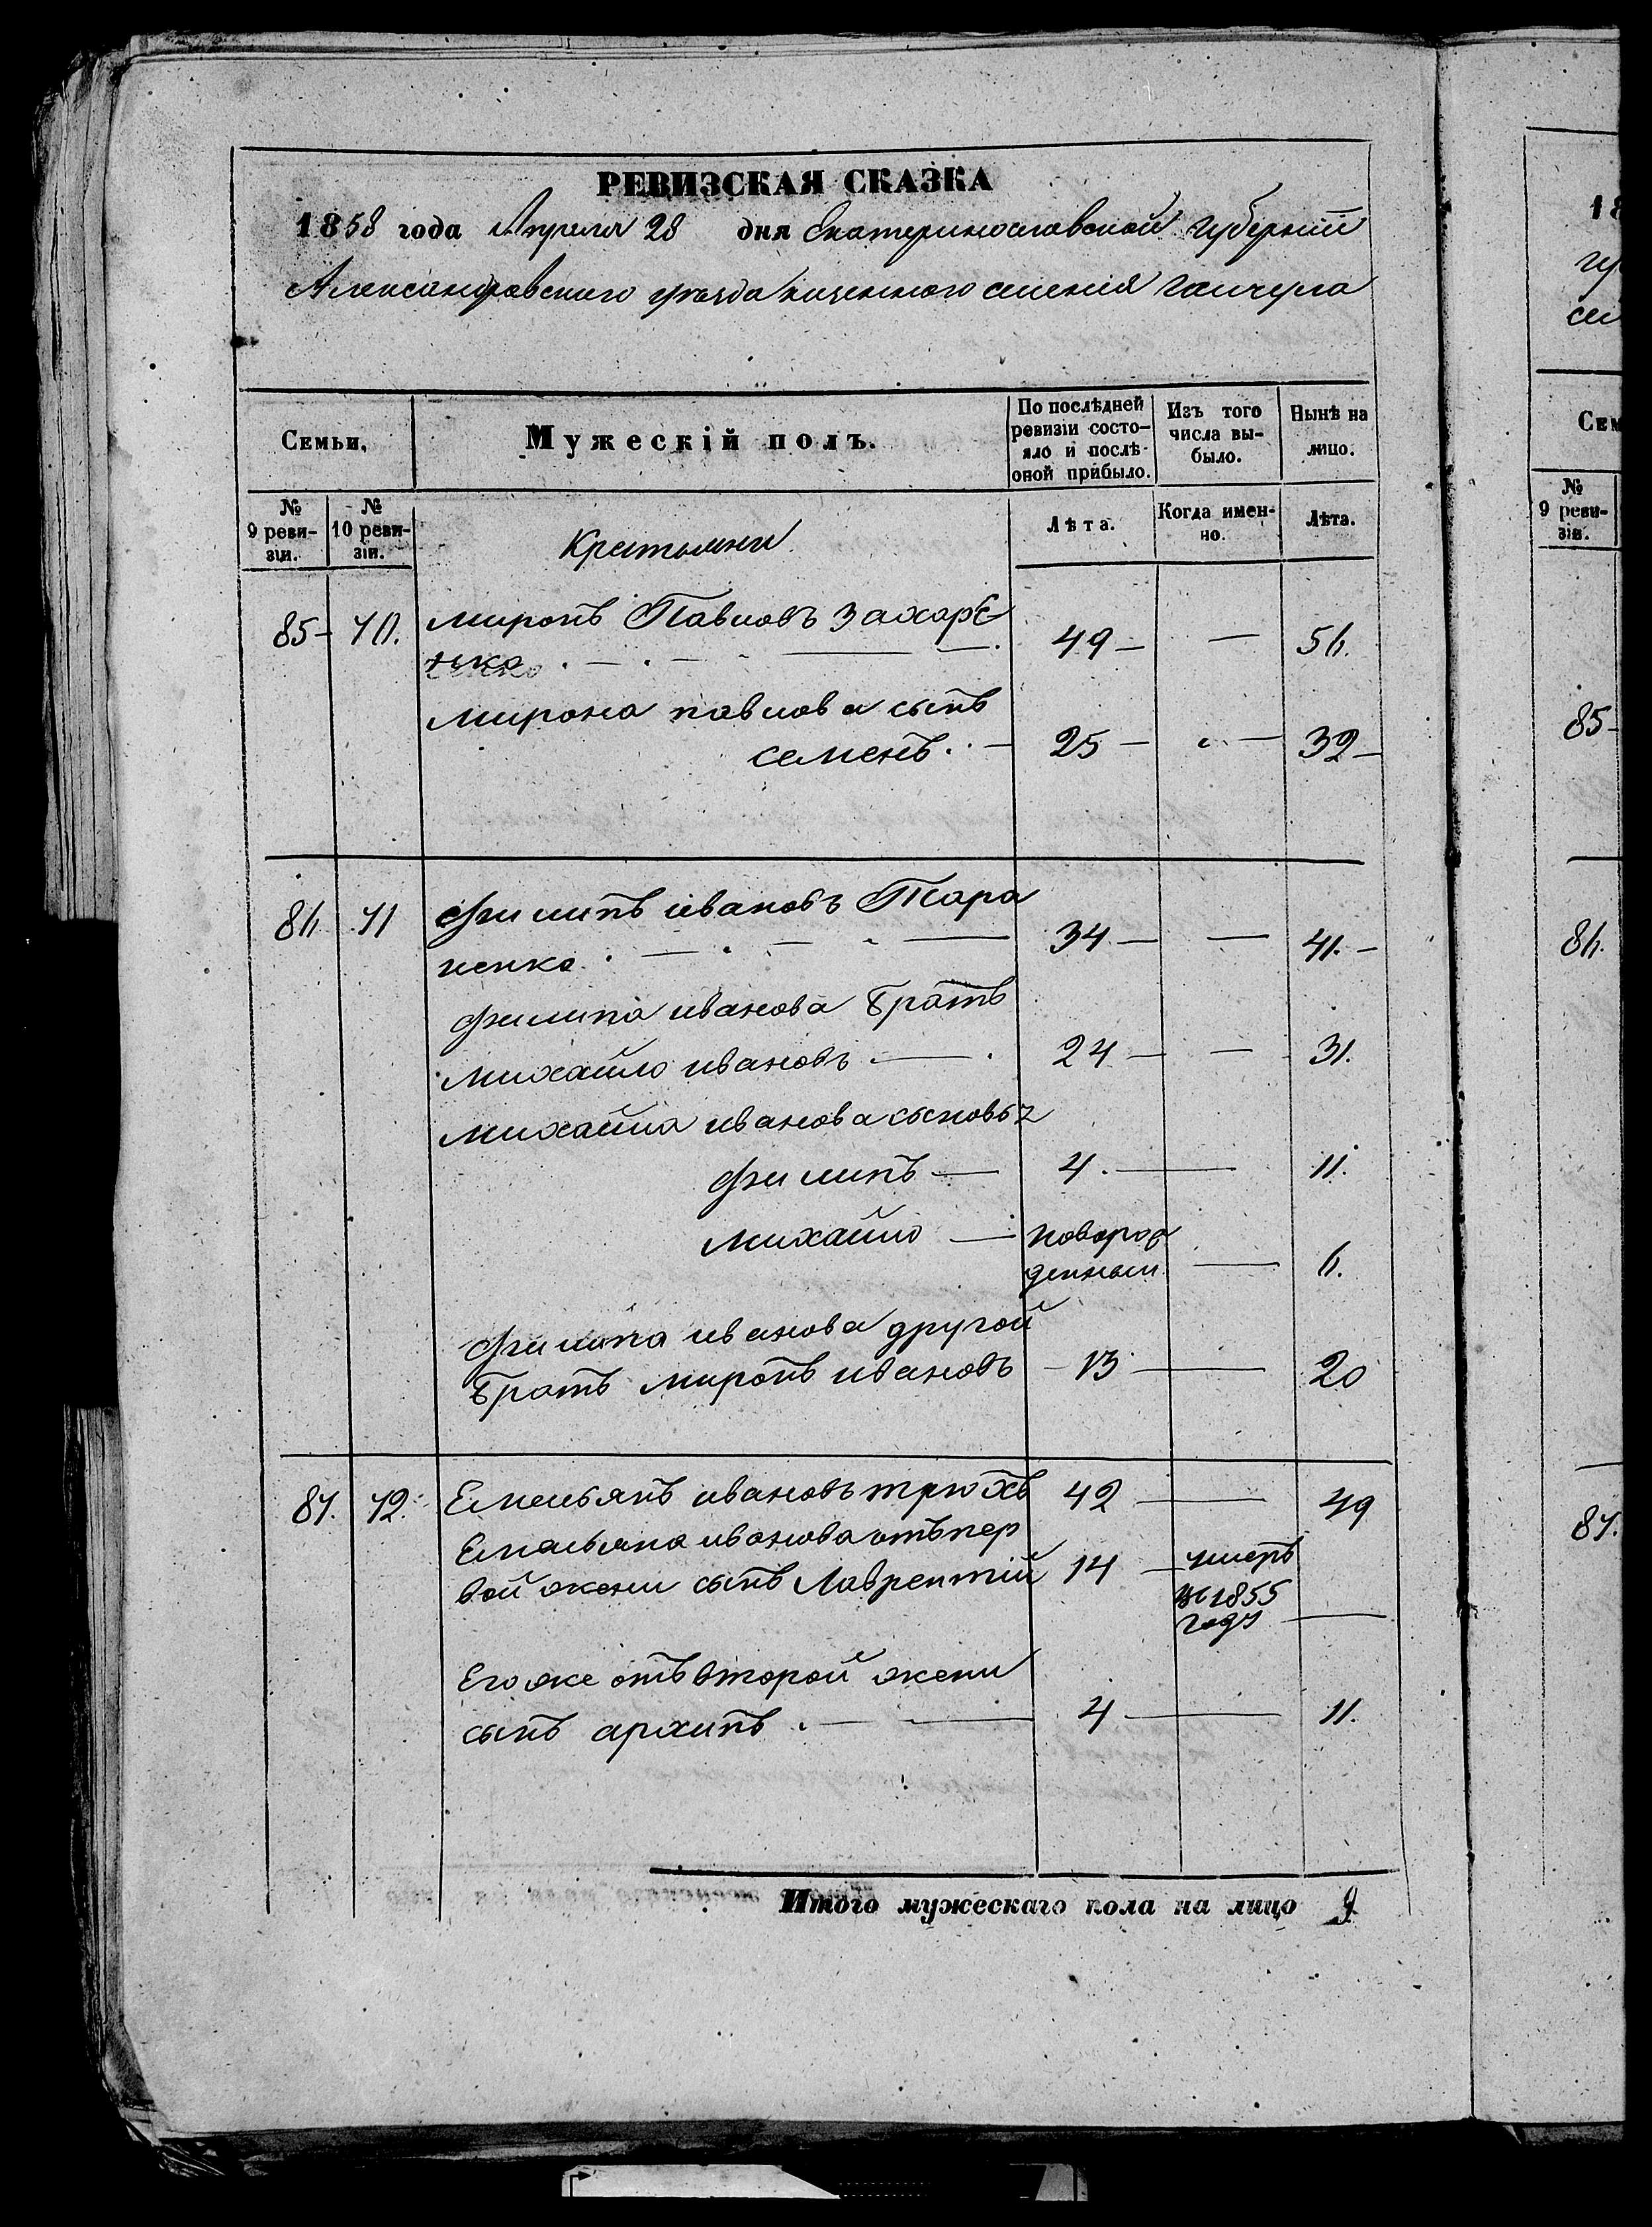 РЕВИЗСКАЯ СКАЗКА
1858 года Апреля 28 дня Екатеринославской губернии
Александровского уезда казенного селения Гайчула
Семьи,
Мужескій полъ.
По послѣдней ревизіи состояло и послѣ оной прибыло.
Изъ того числа выбыло.
Нынѣ на лицо.
№ 9 ревизіи.
№ 10 ревизіи.
Крестьяни
Лѣта.
Когда именно.
Лѣта.
85 70. Миронъ Павловъ Захаре
нко 49 56.
Мирона Павлова сынъ
Семенъ 25 32
86 71 Филипъ Ивановъ Тара
ненко 34 41.
Филипа Иванова братъ
Михайло Ивановъ 24 31.
Михайла Иванова сыновья
Филипъ 4. 11.
Михайло новорож
денный 6.
Филипа Иванова другой
братъ Миронъ Ивановъ 13 20
87. 72. Емельянъ Ивановъ Трюхъ 42 49
Емельяна Иванова отъ пер
вой жени сынъ Лаврентий 14 умеръ
в 1855
году
Его же отъ второй жени
сынъ Архипъ 4 11.
Итого мужескаго пола на лицо 9
18
гу
сел
Сем
№ 9 ревизіи.
85
86.
87.